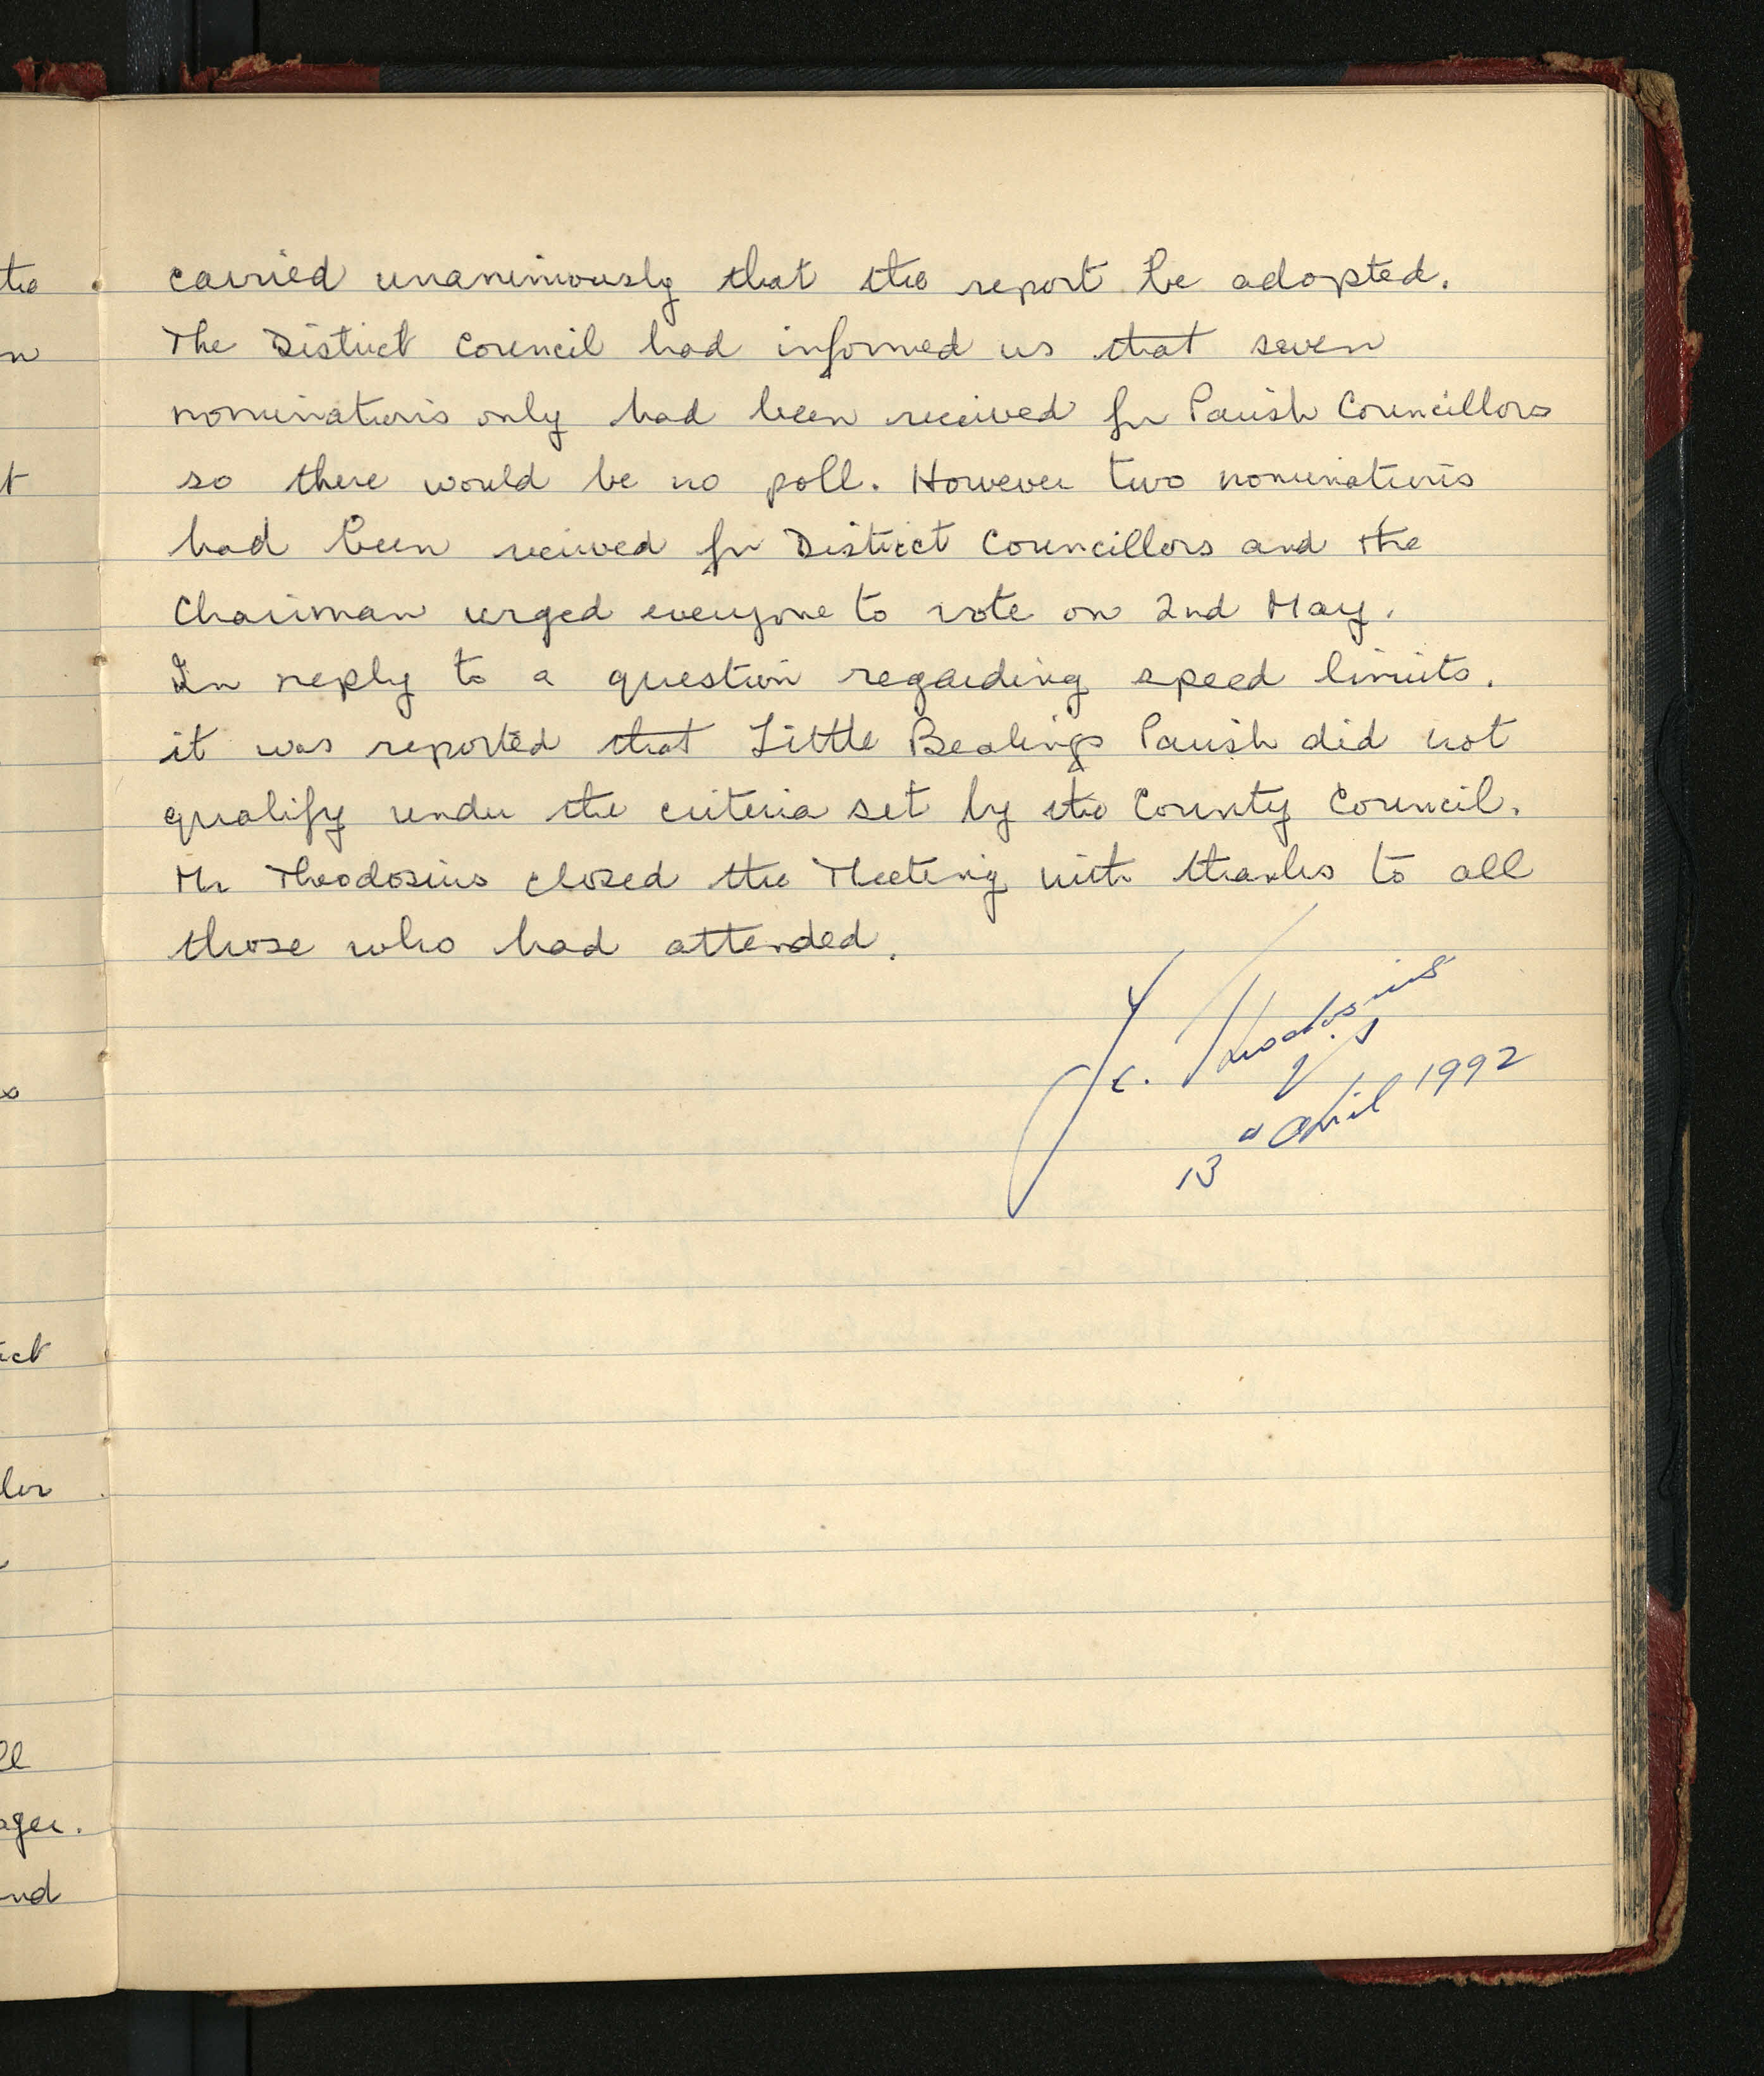 carried unanimously that the report be adopted.
The District Council had informed us that seven
nominations only had been received for Parish Councillors
so there would be no poll. However two nominations
had been received for District Councillors and the
Chairman urged everyone to vote on 2nd May.
In reply to a question regarding speed limits.
it was reported that Little Bealings Parish did not
qualify under the criteria set by the County Council.
Mr Theodosius closed the Meeting with thanks to all
those who had attended.
Theodosius
13 April 1992
the
n
t
ict
lor
ll
ager.
and